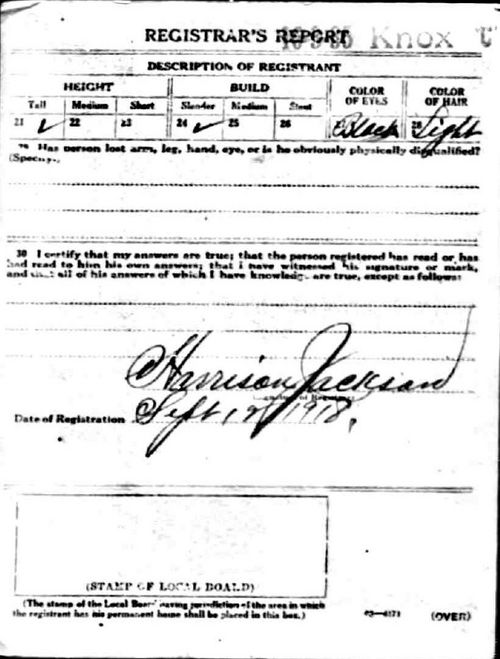 REGISTRAR'S REPORT Knox
DESCRIPTION OF REGISTRANT
HEIGHT BUILD COLOR OF EYES COLOR OF HAIR
Tall Medium Short Slender Medium Stout
21 ✓ 22 23 24 ✓ 25 26 Black Light
29 Has person lost arm, leg, hand, eye, or is he obviously physically disqualified?
(Specify.)
30 I certify that my answers are true; that the person registered has read or has
had read to him his own answers; that I have witnessed his signature or mark,
and that all of his answers of which I have knowledge are true, except as follows:
Harrison Jackson
Date of Registration Sept 12 1918.
(STAMP OF LOCAL BOARD)
(The stamp of the Local Board having jurisdiction of the area in which
the registrant has his permanent home shall be placed in this box.)
(OVER)